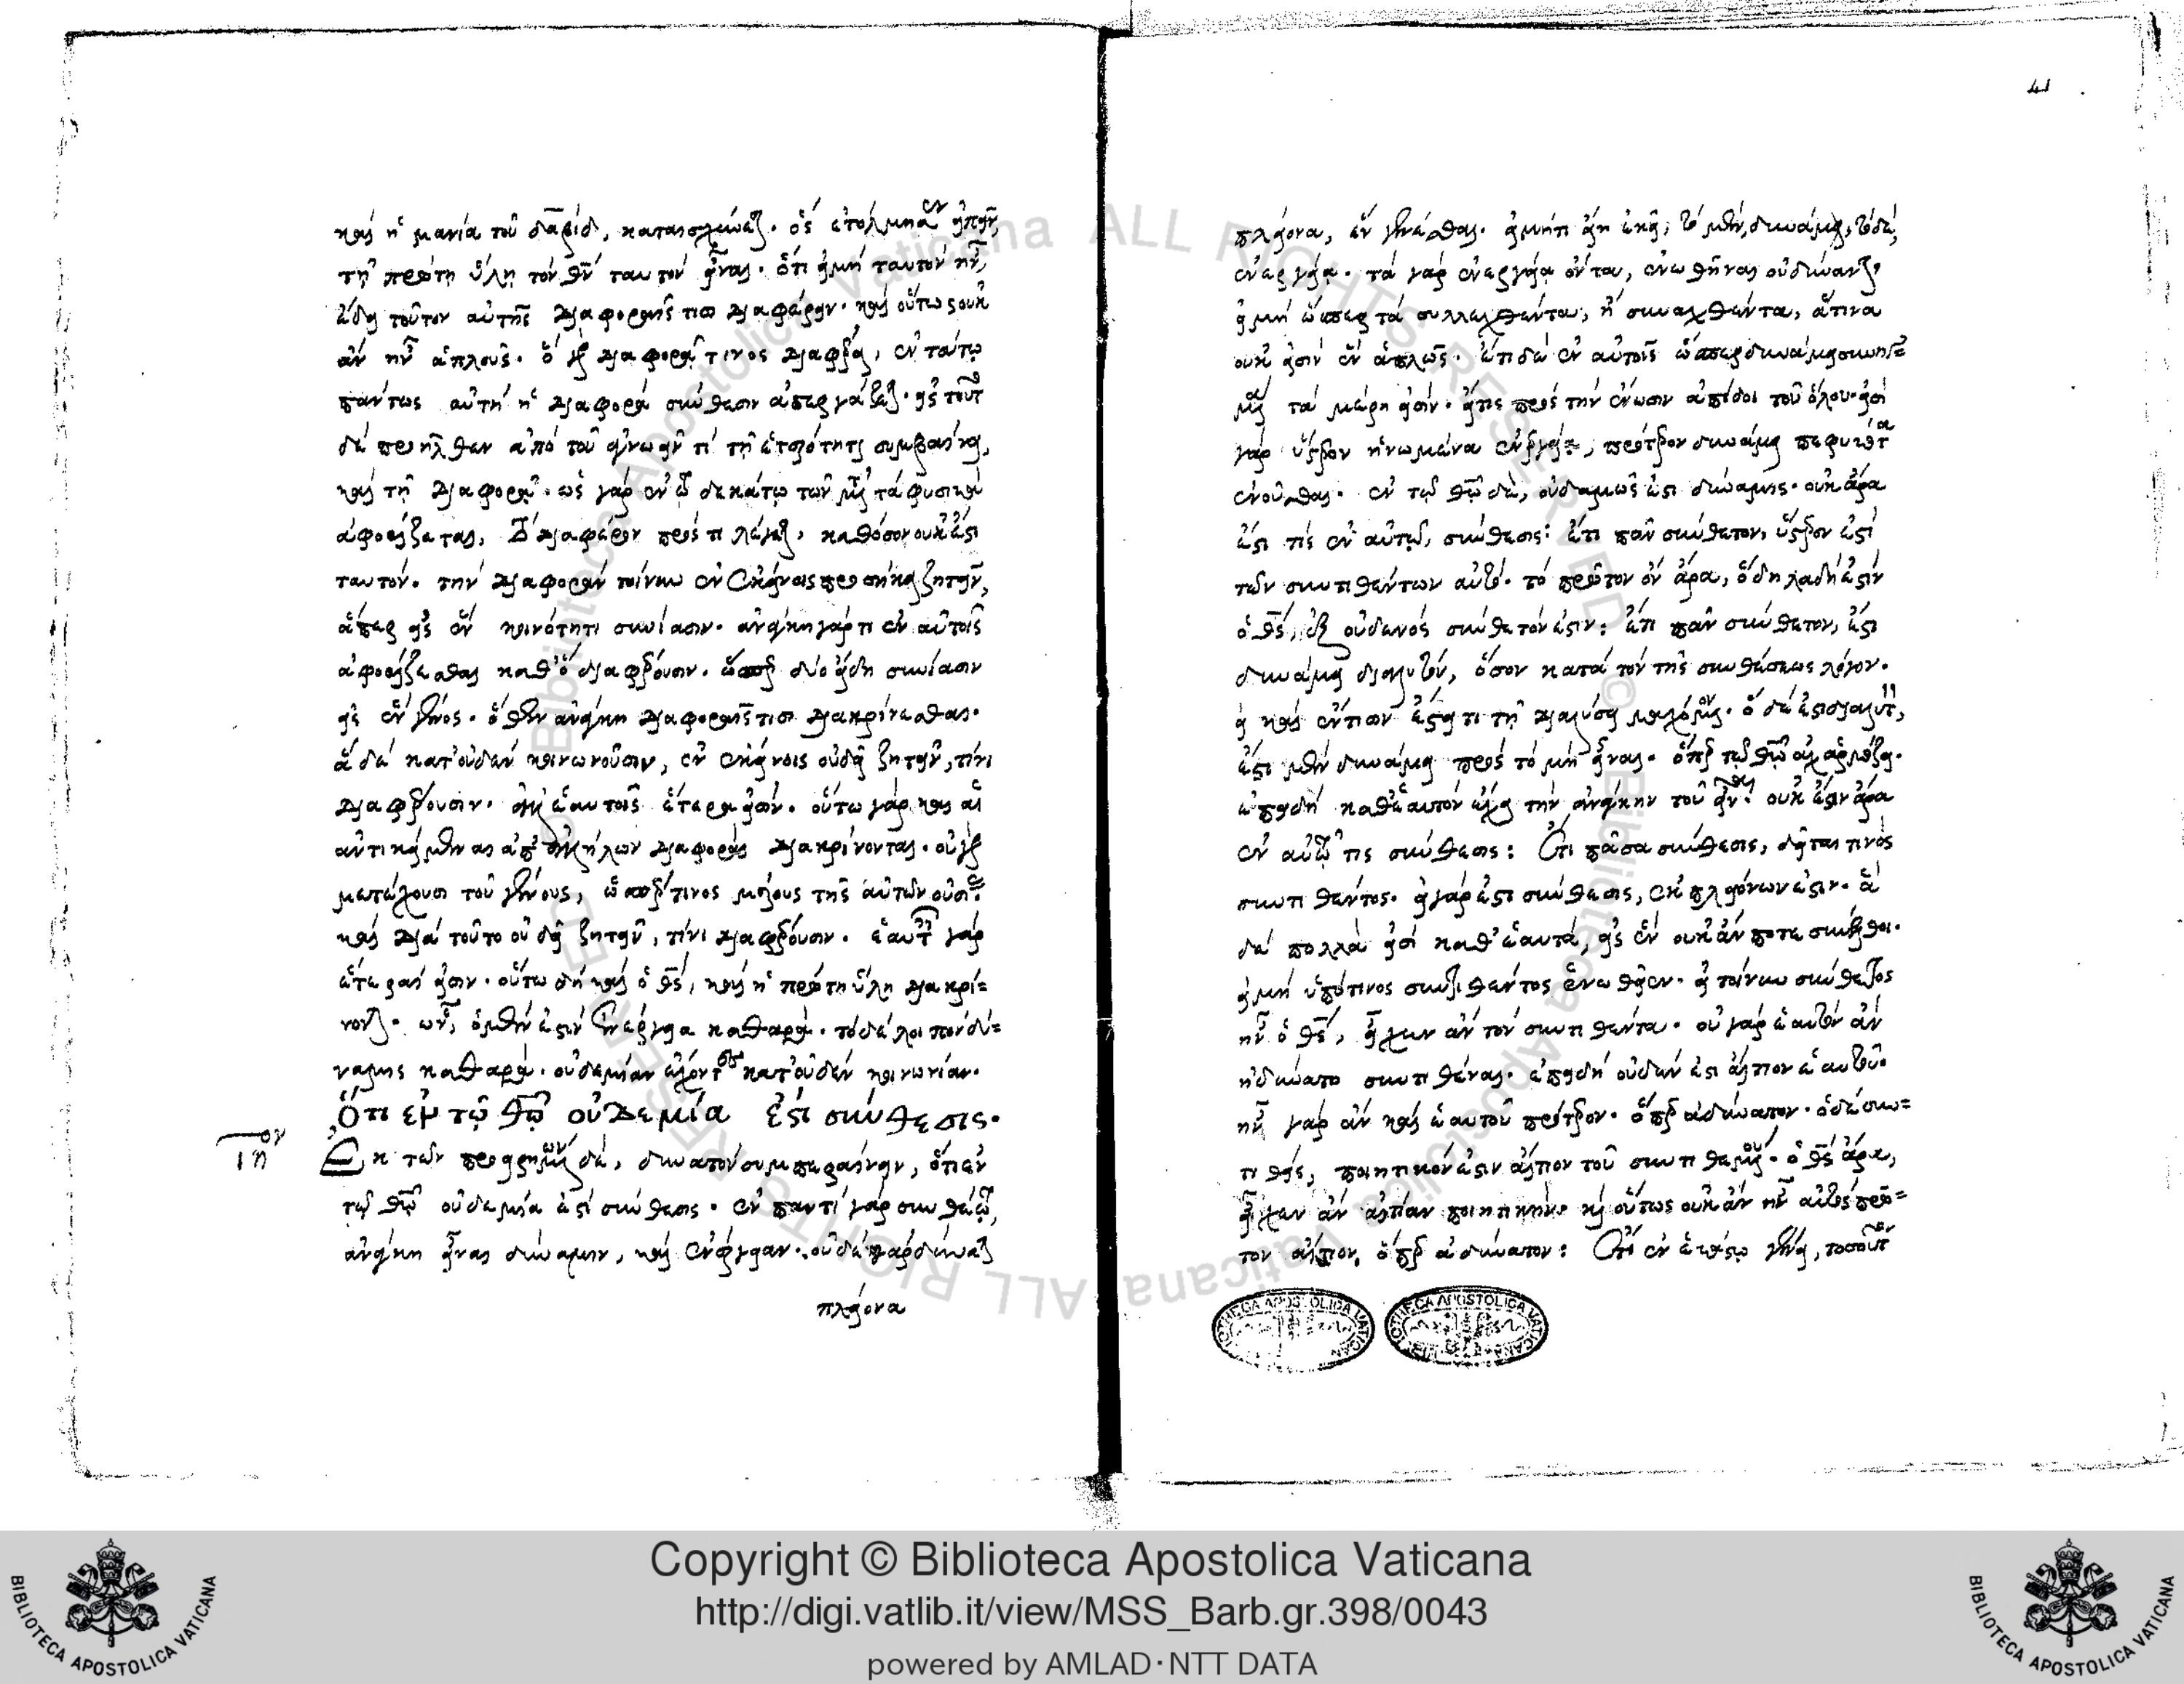 καὶ ἡ μανία τοῦ δαβίδ, κατασχύνεται. ὃς ἐτόλμησεν εἰπεῖν,
τῇ πρώτῃ ὕλῃ τὸν θν ταυτὸν εἶναι. ὅτι εἰ μὴ ταυτὸν ἦν,
ἔδει τοῦτον αὐτῆς διαφοραῖς τισι διαφέρειν. καὶ οὕτως οὐκ
ἂν ἦν ἁπλοῦς. ὃ γὰρ διαφορᾷ τινος διαφέρει, ἐν τούτῳ
πάντως αὐτὴ ἡ διαφορὰ σύνθεσιν ἀπεργάζεται. εἰς τοῦτο
δὲ προῆλθεν ἀπὸ τοῦ ἀγνοεῖν τί τῇ ἑτερότητι συμβαίνει,
καὶ τῇ διαφορᾷ. ὡς γὰρ ἐν τῷ δεκάτῳ τῶν μετὰ τὰ φυσικὰ
ἀφορίζεται, τὸ διαφέρον πρός τι λέγεται, καθόσον οὐκ ἔστι
ταυτόν. τὴν διαφορὰν τοίνυν ἐν ἐκείνοις προσήκει ζητεῖν,
ἅπερ εἰς ἓν κοινότητι συνίασιν. ἀνάγκη γάρ τι ἐν αὐτοῖς
ἀφορίζεσθαι καθ' ὃ διαφέρουσιν. ὥσπερ δύο εἴδη συνίασιν
εἰς ἓν γένος. ὅθεν ἀνάγκη διαφοραῖς τισι διακρίνεσθαι.
ἃ δὲ κατ' οὐδὲν κοινωνοῦσιν, ἐν ἐκείνοις οὐ δεῖ ζητεῖν, τίνι
διαφέρουσιν. ἀλλ' ἑαυτοῖς ἕτερα εἰσίν. οὕτω γὰρ καὶ αἱ
ἀντικείμεναι ἀπ' ἀλλήλων διαφοραὶ διακρίνονται. οὐ γὰρ
μετέχουσι τοῦ γένους, ὥσπερ τινος μέρους τῆς αὐτῶν οὐσίας.
καὶ διὰ τοῦτο οὐ δεῖ ζητεῖν, τίνι διαφέρουσιν. ἑαυταῖς γὰρ
ἕτεραί εἰσιν. οὕτω δὴ καὶ ὁ θς, καὶ ἡ πρώτη ὕλη διακρί=
νονται. ὧν, ὁ μέν ἐστιν ἐνέργεια καθαρά. τὸ δὲ λοιπὸν δύ=
ναμις καθαρά. οὐδεμίαν ἔχοντες κατ' οὐδὲν κοινωνίαν.
Ὅτι ἐν τῷ θῷ οὐδεμία ἐστὶ σύνθεσις.
ιηον Ἐκ τῶν προειρημένων δὲ, δυνατὸν συμπεραίνειν, ὅτι ἐν
τῷ θῷ οὐδεμία ἐστὶ σύνθεσις. ἐν παντὶ γὰρ συνθέτῳ,
ἀνάγκη εἶναι δύναμιν, καὶ ἐνέργειαν. οὐδὲ γὰρ δύναται
πλείονα
41
πλείονα, ἓν γενέσθαι. εἰ μήτι εἴη ἐκεῖ, τὸ μὲν, δυνάμει, τὸ δὲ,
ἐνεργείᾳ. τὰ γὰρ ἐνεργείᾳ ὄντα, ἑνωθῆναι οὐ δύναται,
εἰ μὴ ὥσπερ τὰ συλλεχθέντα, ἢ συναχθέντα, ἅτινα
οὐκ εἰσὶν ἓν ἁπλῶς. ἔτι δὲ ἐν αὐτοῖς ὥσπερ δυνάμει συνηγ=
μένα τὰ μέρη εἰσίν. ἥτις πρὸς τὴν ἕνωσιν ἀπίδοι τοῦ ὅλου. εἰσὶ
γὰρ ὕστερον ἡνωμένα ἐνεργείᾳ, πρότερον δυνάμει πεφυκότα
ἑνοῦσθαι. ἐν τῷ θῷ δὲ, οὐδαμῶς ἐστι δύναμις. οὐκ ἄρα
ἐστί τις ἐν αὐτῷ, σύνθεσις: ἔτι πᾶν σύνθετον, ὕστερον ἐστὶ
τῶν συντιθέντων αὐτό. τὸ πρῶτον ὂν ἄρα, ὃ δηλαδή ἐστιν
ὁ θς, ἐξ οὐδενὸς σύνθετόν ἐστιν: ἔτι πᾶν σύνθετον, ἐστὶ
δυνάμει διαλυτόν, ὅσον κατὰ τὸν τῆς συνθέσεως λόγον.
εἰ καὶ ἐντισιν ἐστί τι τῇ διαλύσει μαχόμενον. ὃ δέ ἐστι διαλυτόν,
ἐστὶ μὲν δυνάμει πρὸς τὸ μὴ εἶναι. ὅπερ τῷ θῷ οὐχ ἁρμόζει.
ἐπειδὴ καθ' ἑαυτὸν ἔχει τὴν ἀνάγκην τοῦ εἶναι. οὐκ ἔστιν ἄρα
ἐν αὐτῷ τις σύνθεσις: Ὅτι πᾶσα σύνθεσις, δεῖται τινὸς
συντιθέντος. εἰ γὰρ ἔστι σύνθεσις, ἐκ πλειόνων ἐστιν. ἃ
δὲ πολλὰ εἰσὶ καθ' ἑαυτὰ, εἰς ἓν οὐκ ἄν ποτε συνέλθοι.
εἰ μὴ ὑπό τινος συντιθέντος ἑνωθείη. εἰ τοίνυν σύνθετος
ἦν ὁ θς, εἶχεν ἂν τὸν συντιθέντα. οὐ γὰρ ἑαυτὸν ἂν
ἠδύνατο συντιθέναι. ἐπειδὴ οὐδέν ἐστι αἴτιον ἑαυτοῦ.
ἦν γὰρ ἂν καὶ ἑαυτοῦ πρότερον. ὅπερ ἀδύνατον. ὁ δὲ συν=
τιθεὶς, ποιητικόν ἐστιν αἴτιον τοῦ συντιθεμένου. ὁ θς ἄρα,
εἶχεν ἂν αἰτίαν ποιητικήν. καὶ οὕτως οὐκ ἂν ἦν αὐτὸς πρῶ=
τον αἴτιον, ὅπερ ἀδύνατον: Ὅτι ἐν ἑκάστῳ γένει, τοσοῦτον
Copyright © Biblioteca Apostolica Vaticana
http://digi.vatlib.it/view/MSS_Barb.gr.398/0043
powered by AMLAD·NTT DATA
BIBLIOTECA APOSTOLICA VATICANA
BIBLIOTECA APOSTOLICA VATICANA